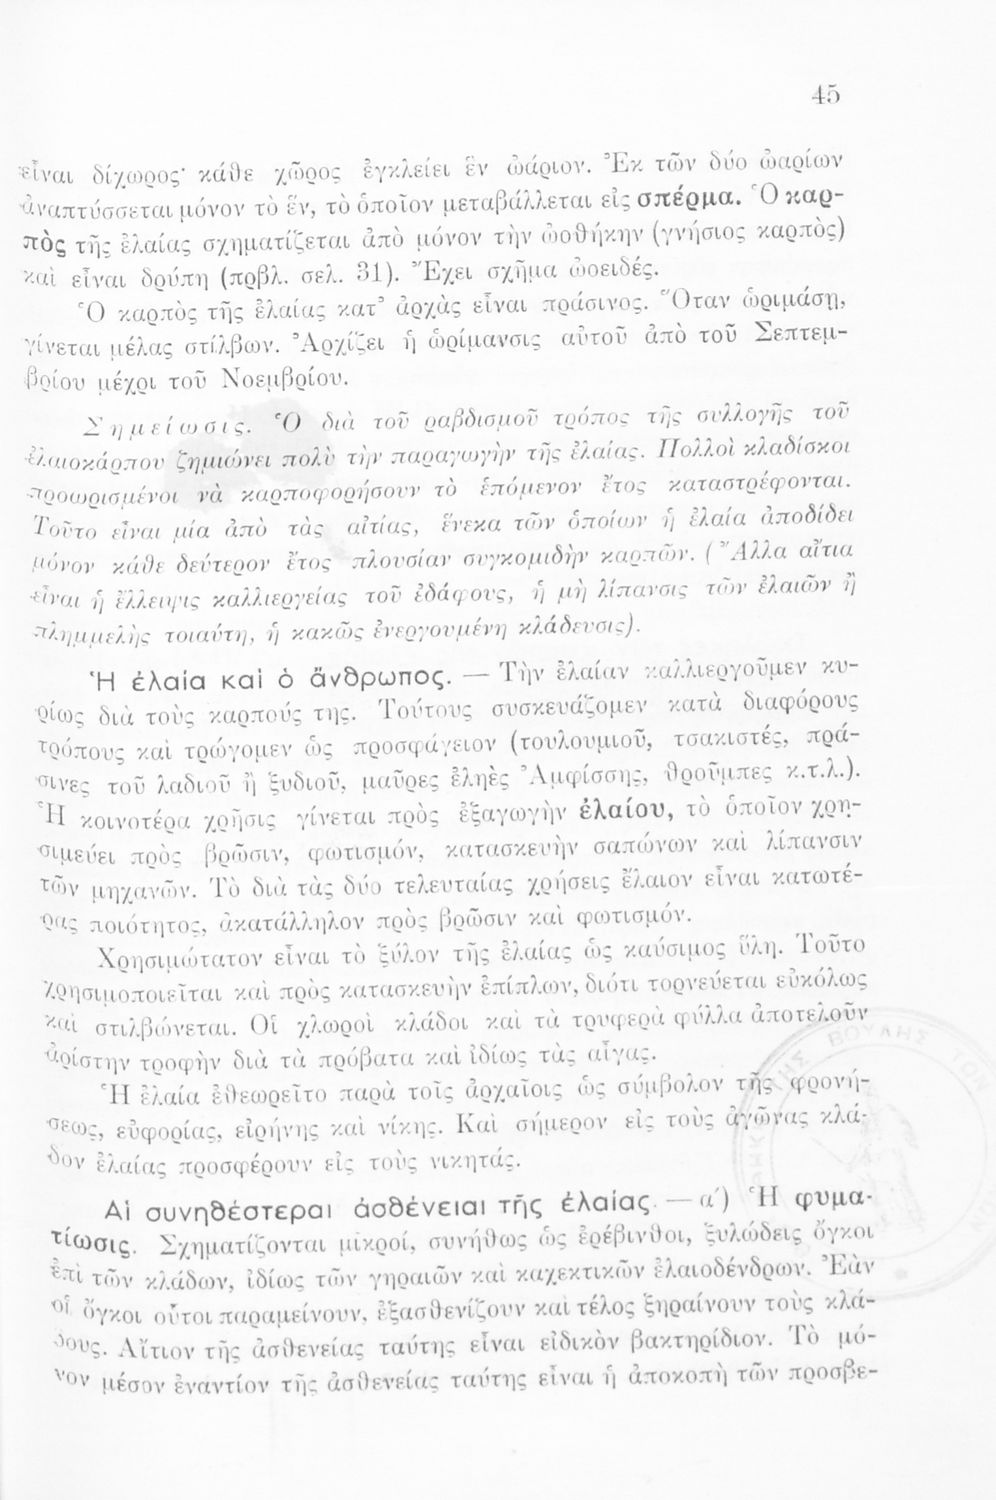 45
εἶναι δίχωρος· κάθε χῶρος ἐγκλείει ἓν ὠάριον. Ἐκ τῶν δύο ὠαρίων
ἀναπτύσσεται μόνον τὸ ἕν, τὸ ὁποῖον μεταβάλλεται εἰς σπέρμα. Ὁ καρ-
πὸς τῆς ἐλαίας σχηματίζεται ἀπὸ μόνον τὴν ὠοθήκην (γνήσιος καρπὸς)
καὶ εἶναι δρύπη (πρβλ. σελ. 31). Ἔχει σχῆμα ὠοειδές.
Ὁ καρπὸς τῆς ἐλαίας κατ’ ἀρχὰς εἶναι πράσινος. Ὅταν ὡριμάσῃ,
γίνεται μέλας στίλβων. Ἀρχίζει ἡ ὡρίμανσις αὐτοῦ ἀπὸ τοῦ Σεπτεμ-
βρίου μέχρι τοῦ Νοεμβρίου.
Σημείωσις. Ὁ διὰ τοῦ ραβδισμοῦ τρόπος τῆς συλλογῆς τοῦ
ἐλαιοκάρπου ζημιώνει πολὺ τὴν παραγωγὴν τῆς ἐλαίας. Πολλοὶ κλαδίσκοι
προωρισμένοι νὰ καρποφορήσουν τὸ ἑπόμενον ἔτος καταστρέφονται.
Τοῦτο εἶναι μία ἀπὸ τὰς αἰτίας, ἕνεκα τῶν ὁποίων ἡ ἐλαία ἀποδίδει
μόνον κάθε δεύτερον ἔτος πλουσίαν συγκομιδὴν καρπῶν. (Ἄλλα αἴτια
εἶναι ἡ ἔλλειψις καλλιεργείας τοῦ ἐδάφους, ἡ μὴ λίπανσις τῶν ἐλαιῶν ἢ
πλημμελὴς τοιαύτη, ἡ κακῶς ἐνεργουμένη κλάδευσις).
Ἡ ἐλαία καὶ ὁ ἄνθρωπος. — Τὴν ἐλαίαν καλλιεργοῦμεν κυ-
ρίως διὰ τοὺς καρπούς της. Τούτους συσκευάζομεν κατὰ διαφόρους
τρόπους καὶ τρώγομεν ὡς προσφάγειον (τουλουμιοῦ, τσακιστές, πρά-
σινες τοῦ λαδιοῦ ἢ ξυδιοῦ, μαῦρες ἐληὲς Ἀμφίσσης, θροῦμπες κ.τ.λ.).
Ἡ κοινοτέρα χρῆσις γίνεται πρὸς ἐξαγωγὴν ἐλαίου, τὸ ὁποῖον χρη-
σιμεύει πρὸς βρῶσιν, φωτισμόν, κατασκευὴν σαπώνων καὶ λίπανσιν
τῶν μηχανῶν. Τὸ διὰ τὰς δύο τελευταίας χρήσεις ἔλαιον εἶναι κατωτέ-
ρας ποιότητος, ἀκατάλληλον πρὸς βρῶσιν καὶ φωτισμόν.
Χρησιμώτατον εἶναι τὸ ξύλον τῆς ἐλαίας ὡς καύσιμος ὕλη. Τοῦτο
χρησιμοποιεῖται καὶ πρὸς κατασκευὴν ἐπίπλων, διότι τορνεύεται εὐκόλως
καὶ στιλβώνεται. Οἱ χλωροὶ κλάδοι καὶ τὰ τρυφερὰ φύλλα ἀποτελοῦν
ἀρίστην τροφὴν διὰ τὰ πρόβατα καὶ ἰδίως τὰς αἶγας.
Ἡ ἐλαία ἐθεωρεῖτο παρὰ τοῖς ἀρχαίοις ὡς σύμβολον τῆς φρονή-
σεως, εὐφορίας, εἰρήνης καὶ νίκης. Καὶ σήμερον εἰς τοὺς ἀγῶνας κλά-
δον ἐλαίας προσφέρουν εἰς τοὺς νικητάς.
Αἱ συνηθέστεραι ἀσθένειαι τῆς ἐλαίας. — α΄) Ἡ φυμα-
τίωσις. Σχηματίζονται μικροί, συνήθως ὡς ἐρέβινθοι, ξυλώδεις ὄγκοι
ἐπὶ τῶν κλάδων, ἰδίως τῶν γηραιῶν καὶ καχεκτικῶν ἐλαιοδένδρων. Ἐὰν
οἱ ὄγκοι οὗτοι παραμείνουν, ἐξασθενίζουν καὶ τέλος ξηραίνουν τοὺς κλά-
δους. Αἴτιον τῆς ἀσθενείας ταύτης εἶναι εἰδικὸν βακτηρίδιον. Τὸ μό-
νον μέσον ἐναντίον τῆς ἀσθενείας ταύτης εἶναι ἡ ἀποκοπὴ τῶν προσβε-